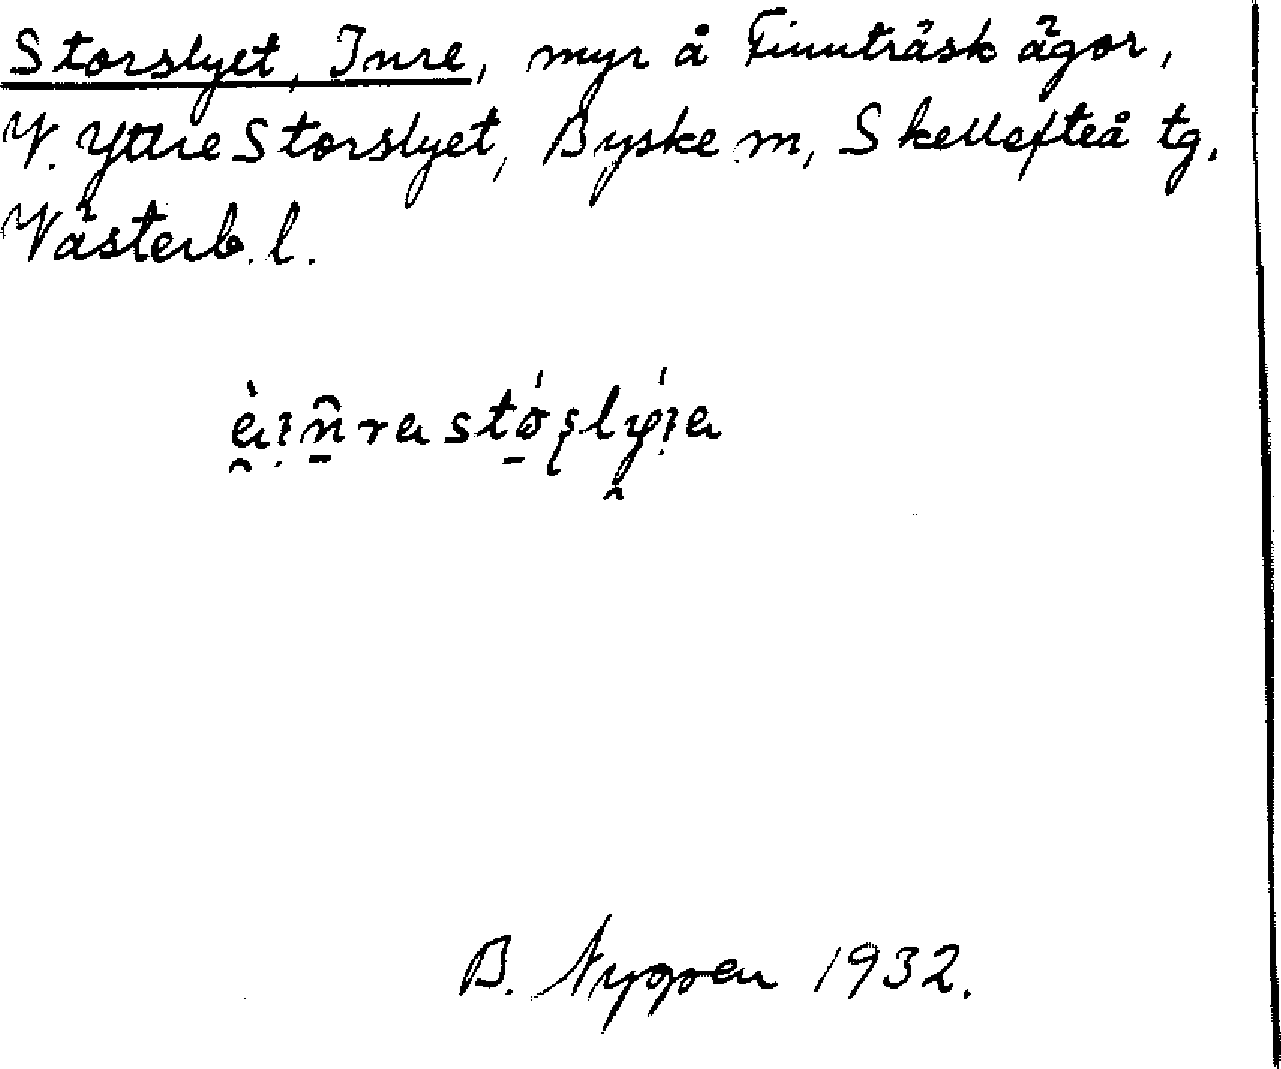 Storslyet, Inre, myr å Finnträsk ägor,
V. Yttre Storslyet, Byske m, Skellefteå tg,
Västerb. l.
B. Nygren 1932.